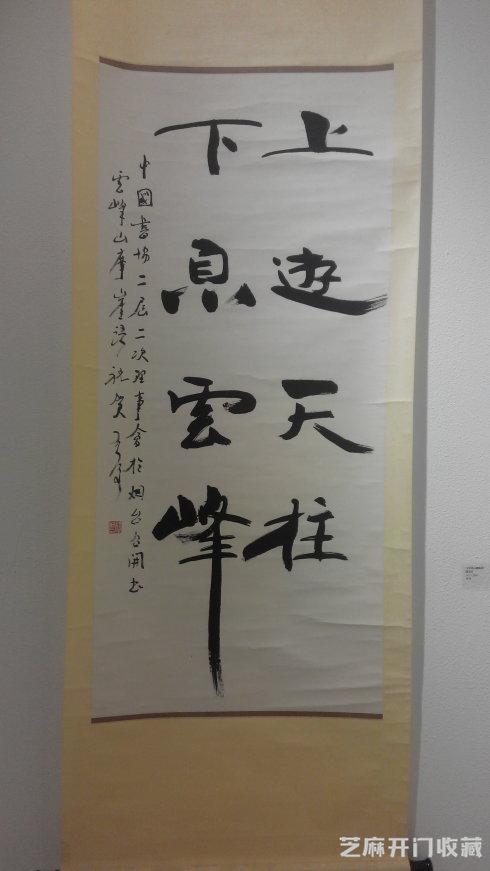 上遊天柱
下息雲峰
中國書協二屆二次理事會於烟台召開書
雲峰山摩崖語祝賀
芝麻开门收藏